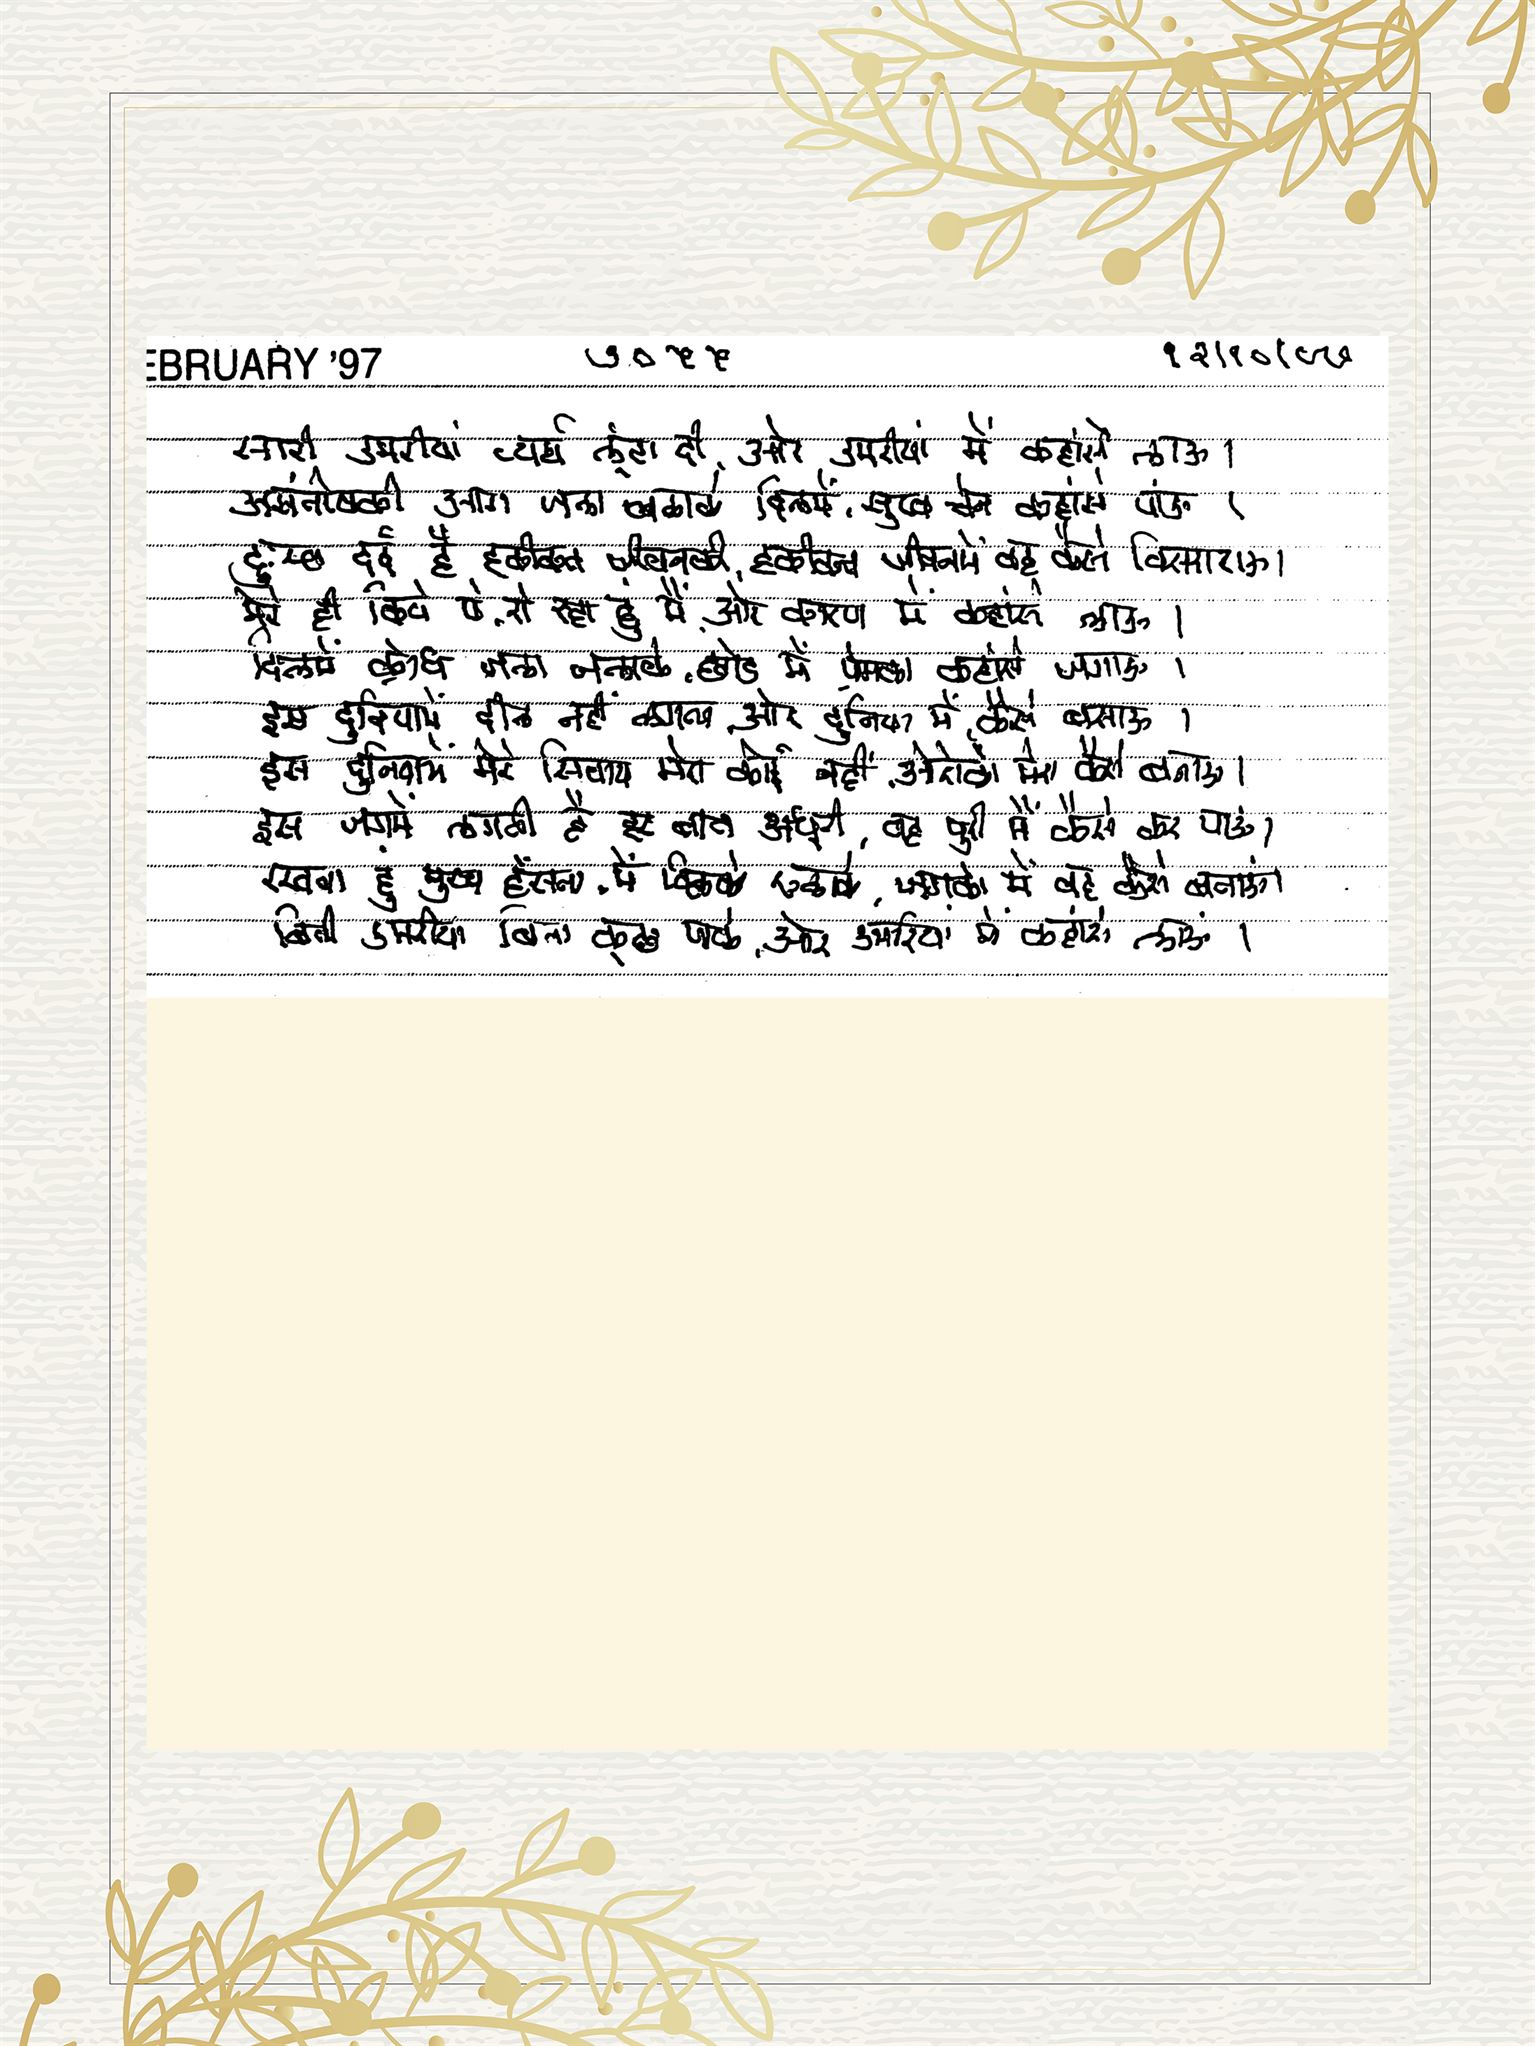 EBRUARY '97 ७०५५ १२/१०/९७
सारी उमरीयां व्यर्थ लूंटा दी, और उमरीयां में कहांसे लाऊ ।
असंतोषकी आग जला दिलमें, सुख चेन कहांसे पांऊ ।
दुःख दर्द है हकीकत जीवनकी, हकीकत जीवनमें वह कैसे विसाराऊ ।
मेरे ही किये पे, रो रहा हुं मैं, और कारण में कहांसे लाऊ ।
दिलमें क्रोध जला जलाके, छोड में प्रेमका कहांसे जगाऊ ।
इस दुनियामें दील नहीं लगता, और दुनिया में कैसे बसाऊ ।
इस दुनियामें मेरे सिवाय मेरा कोई नहीं, ओरोको मेरा कैसे बनाऊ ।
इस जगमें लगती है हर बात अधुरी, वह पुरी मैं कैसे कर पाऊं ।
रखता हुं मुख हंसता, में दिलके रुलाके, जगको में वह कैसे बनाऊं ।
बिती उमरीया बिना कुछ पाके, और उमरियां में कहांसे लाऊं ।